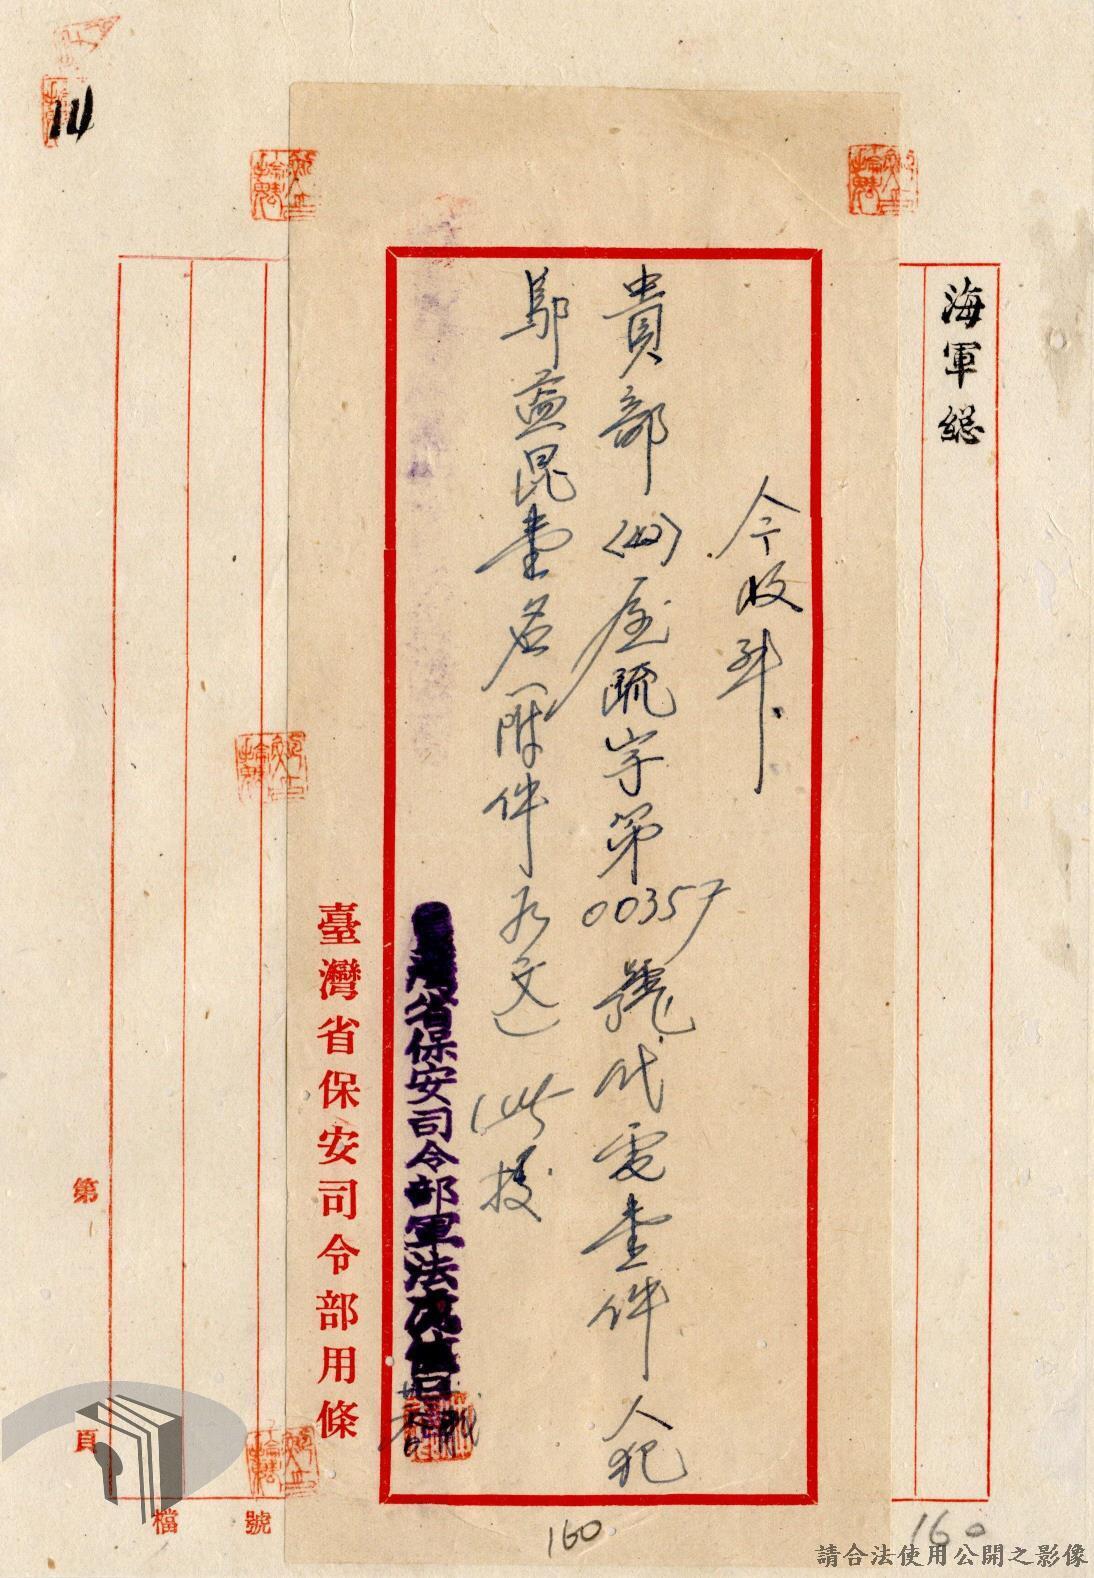 海軍總
今收到
貴部(42)
字第00357號代電壹件人犯
鄔益昆壹名附件如文 此據
省保安司令部軍法處
臺灣省保安司令部用條
第
頁
檔
號
160
160
請合法使用公開之影像